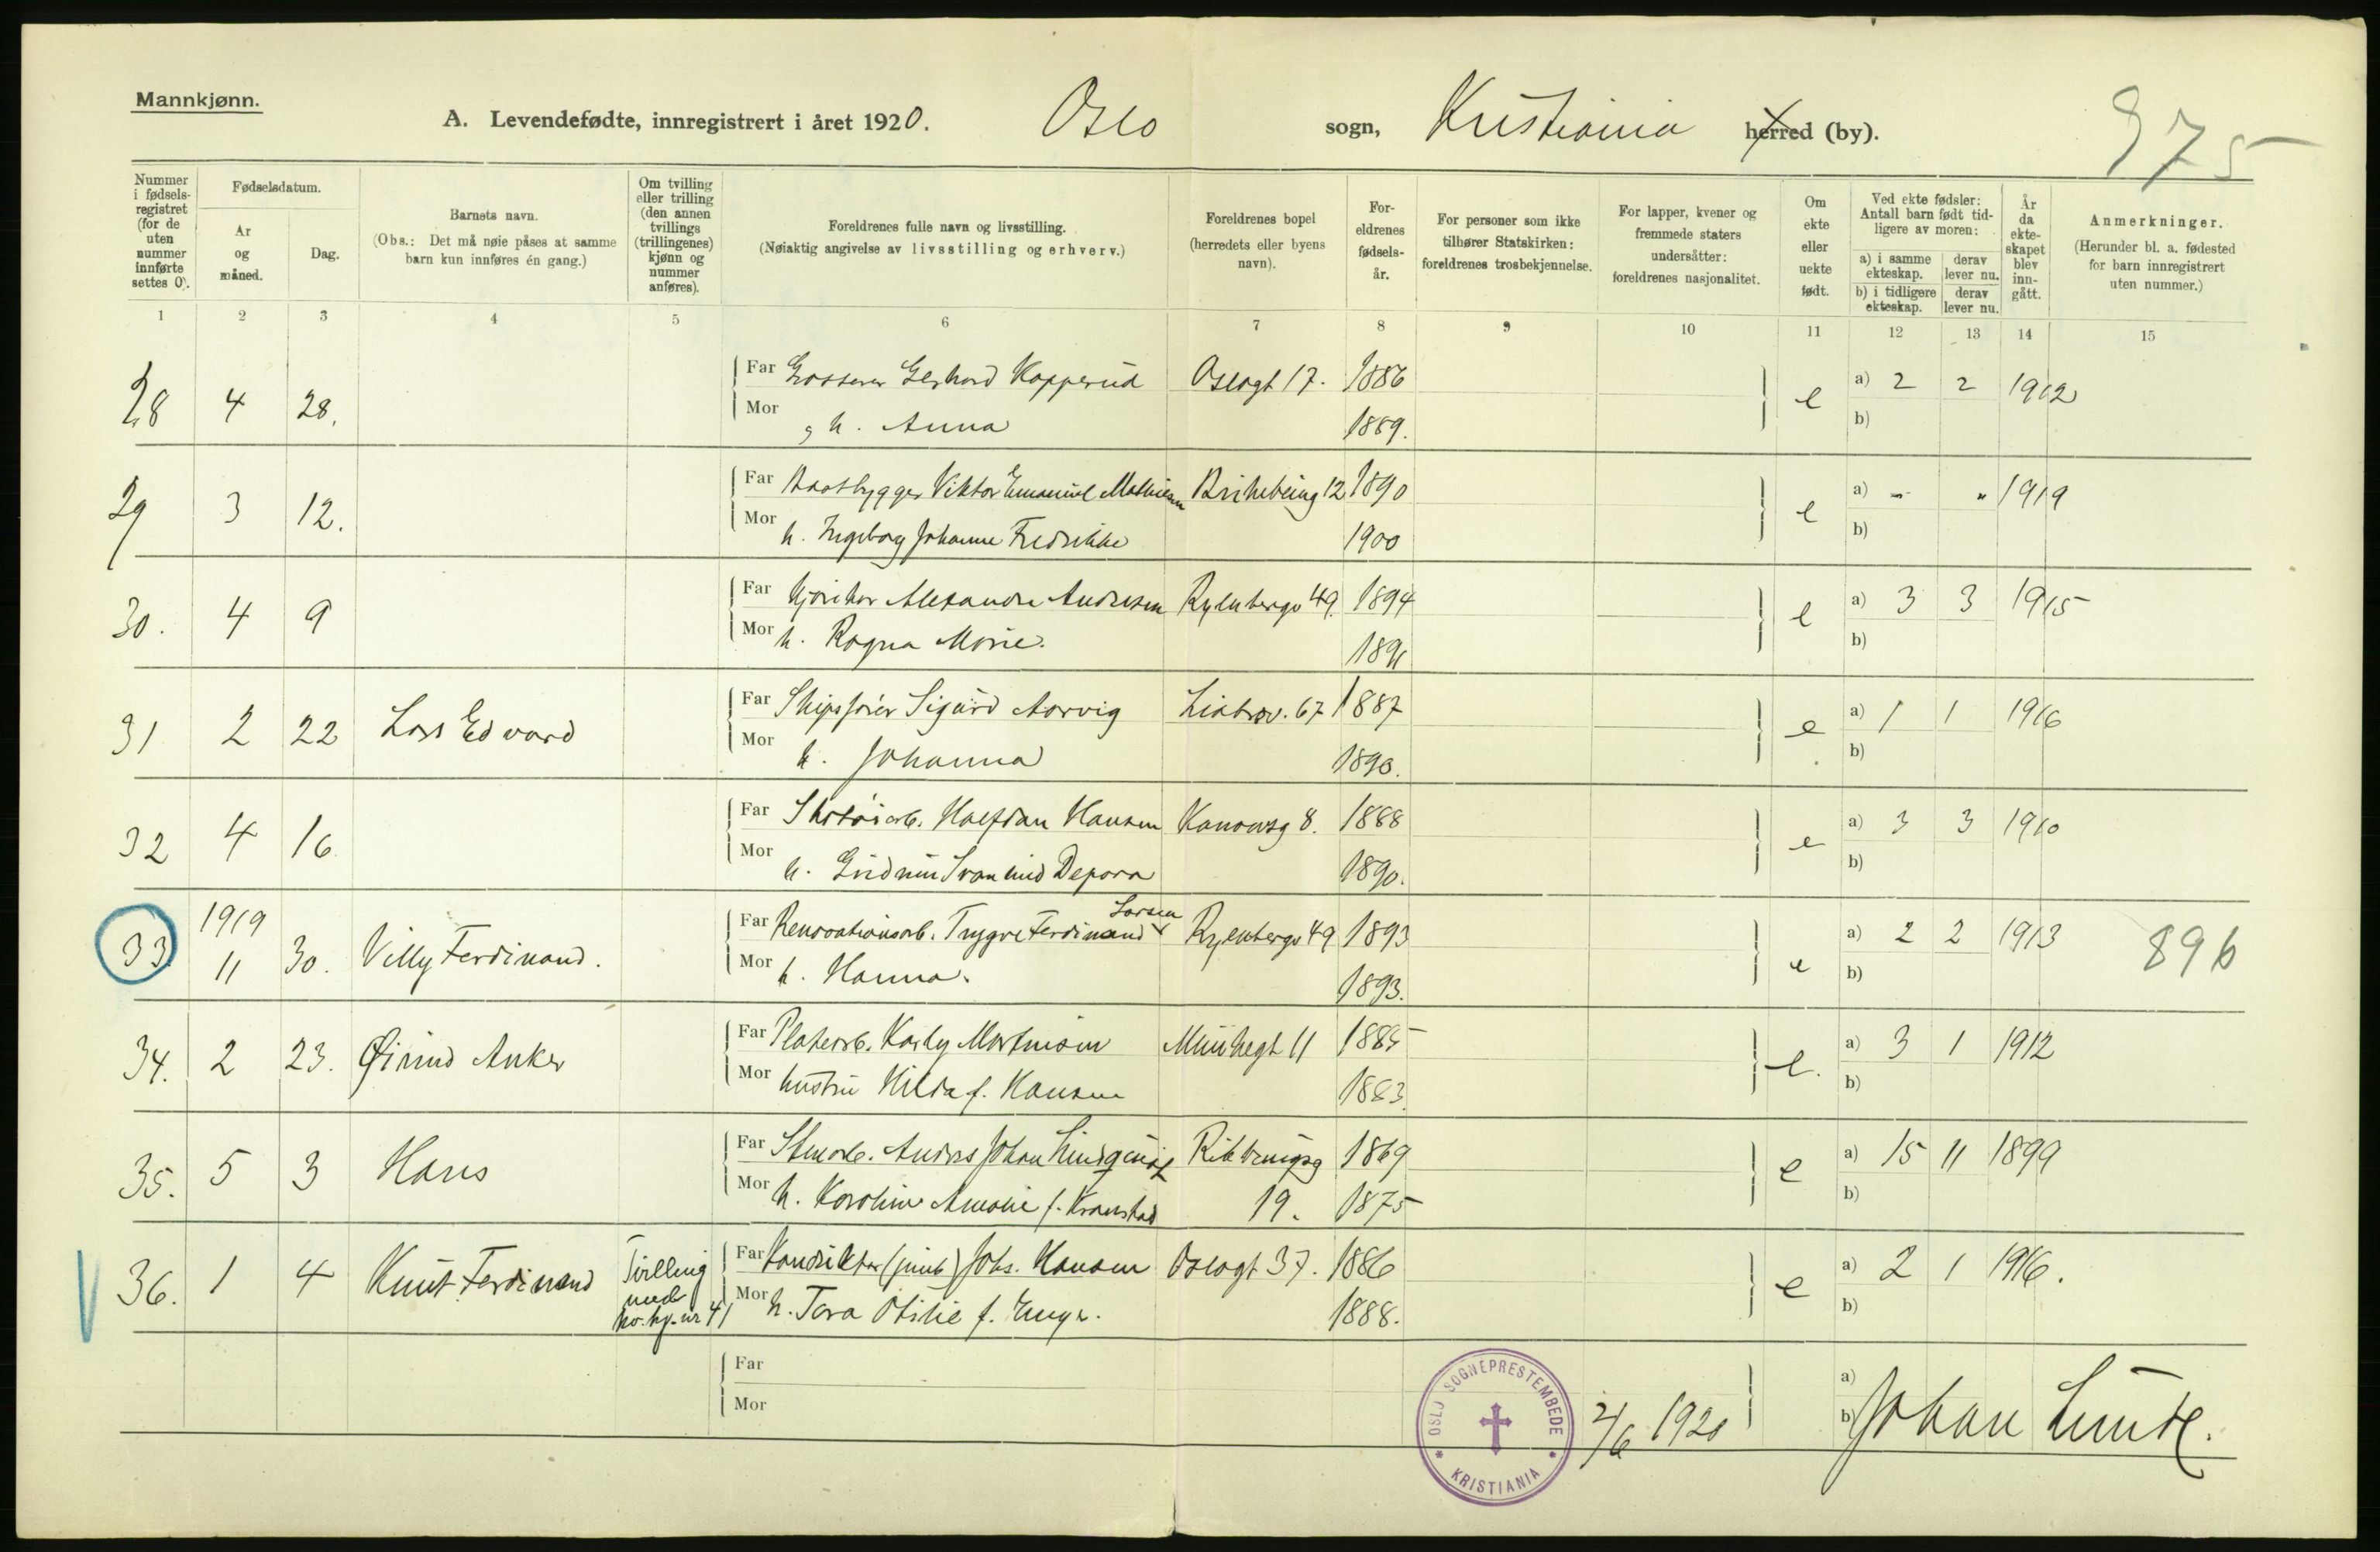 Mannkjønn.
A. Levendefødte, innregistrert i året 1920. Oslo sogn, Kristiania herred (by).
975
Nummer i fødsels-registret (for de uten nummer innførte settes 0).
Fødselsdatum.
År og måned.
Dag.
Barnets navn.
(Obs.: Det må nøie påses at samme barn kun innføres én gang.)
Om tvilling eller trilling (den annen tvillings (trillingenes) kjønn og nummer anføres).
Foreldrenes fulle navn og livsstilling.
(Nøiaktig angivelse av livsstilling og erhverv.)
Foreldrenes bopel (herredets eller byens navn).
For-eldrenes fødsels-år.
For personer som ikke tilhører Statskirken: foreldrenes trosbekjennelse.
For lapper, kvener og fremmede staters undersåtter: foreldrenes nasjonalitet.
Om ekte eller uekte født.
Ved ekte fødsler: Antall barn født tid-ligere av moren:
a) i samme ekteskap. derav lever nu.
b) i tidligere ekteskap. derav lever nu.
År da ekte-skapet blev inn-gått.
Anmerkninger.
(Herunder bl. a. fødested for barn innregistrert uten nummer.)
1 2 3 4 5 6 7 8 9 10 11 12 13 14 15
28 4 28. Far Grosserer Gerhard Kopperud Oslogt 17. 1886 e a) 2 2 1912
Mor h. Anna 1889. b)
29 3 12. Far Baatbygger Viktor Emanuel Mathiesen 12 1890 e a) - " 1919
Mor h. Ingeborg Johanne Fredrikke 1900 b)
30. 4 9 Far Alexander Andresen Rylenbergv 49. 1894 e a) 3 3 1915
Mor h. Ragna Marie. b)
31 2 22 Lars Edvard Far Skipsfører Sigurd Aarvig Liabrov. 67 1887 e a) 1 1 1916
Mor h. Johanna 1890. b)
32 4 16 Far Halfdan Hansen Kanonsg 8. 1888 e a) 3 3 1910
Mor h. 1890. b)
33. 1919 11 30. Villy Ferdinand. Far Renovationsarb. Trygve Ferdinand Larsen Rylenbergv 49 1893 e a) 2 2 1913 896
Mor h. Hanna. 1893. b)
34. 2 23. Øivind Anker Far Platearb. Karly Martinsen Munkegt 11 1885 e. a) 3 1 1912
Mor hustru Hilda f. Hansen 1883. b)
35. 5 3 Hans Far Stenarb. Anders Johan Lindqvist 1869 e a) 15 11 1899
Mor h. Karoline Amalie f. 19. 1875 b)
36. 1 4 Knut Ferdinand Tvilling med kv.kj. nr 41 Far Konduktør Johs. Hansen Oslogt 37. 1886 e a) 2 1 1916.
Mor h. Tora Otilie f. 1888. b)
Far a)
Mor b)
OSLO SOGNEPRESTEMBEDE * KRISTIANIA *
2/6 1920 Johan Lunde.